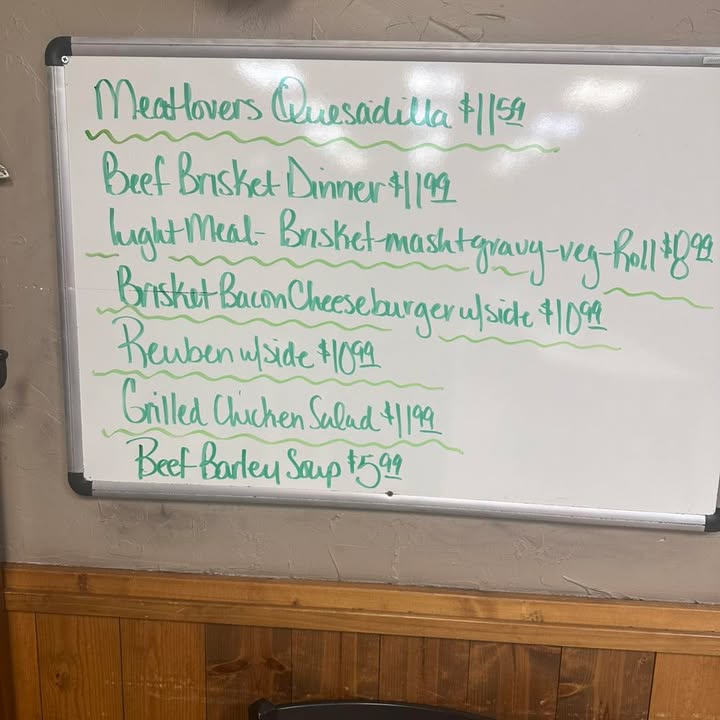 Meatlovers Quesadilla $11.59
Beef Brisket Dinner $11.99
light Meal - Brisket-mash+gravy-veg-Roll $8.99
Brisket Bacon Cheeseburger w/side $10.99
Reuben w/side $10.99
Grilled Chicken Salad $11.99
Beef Barley Soup $5.99